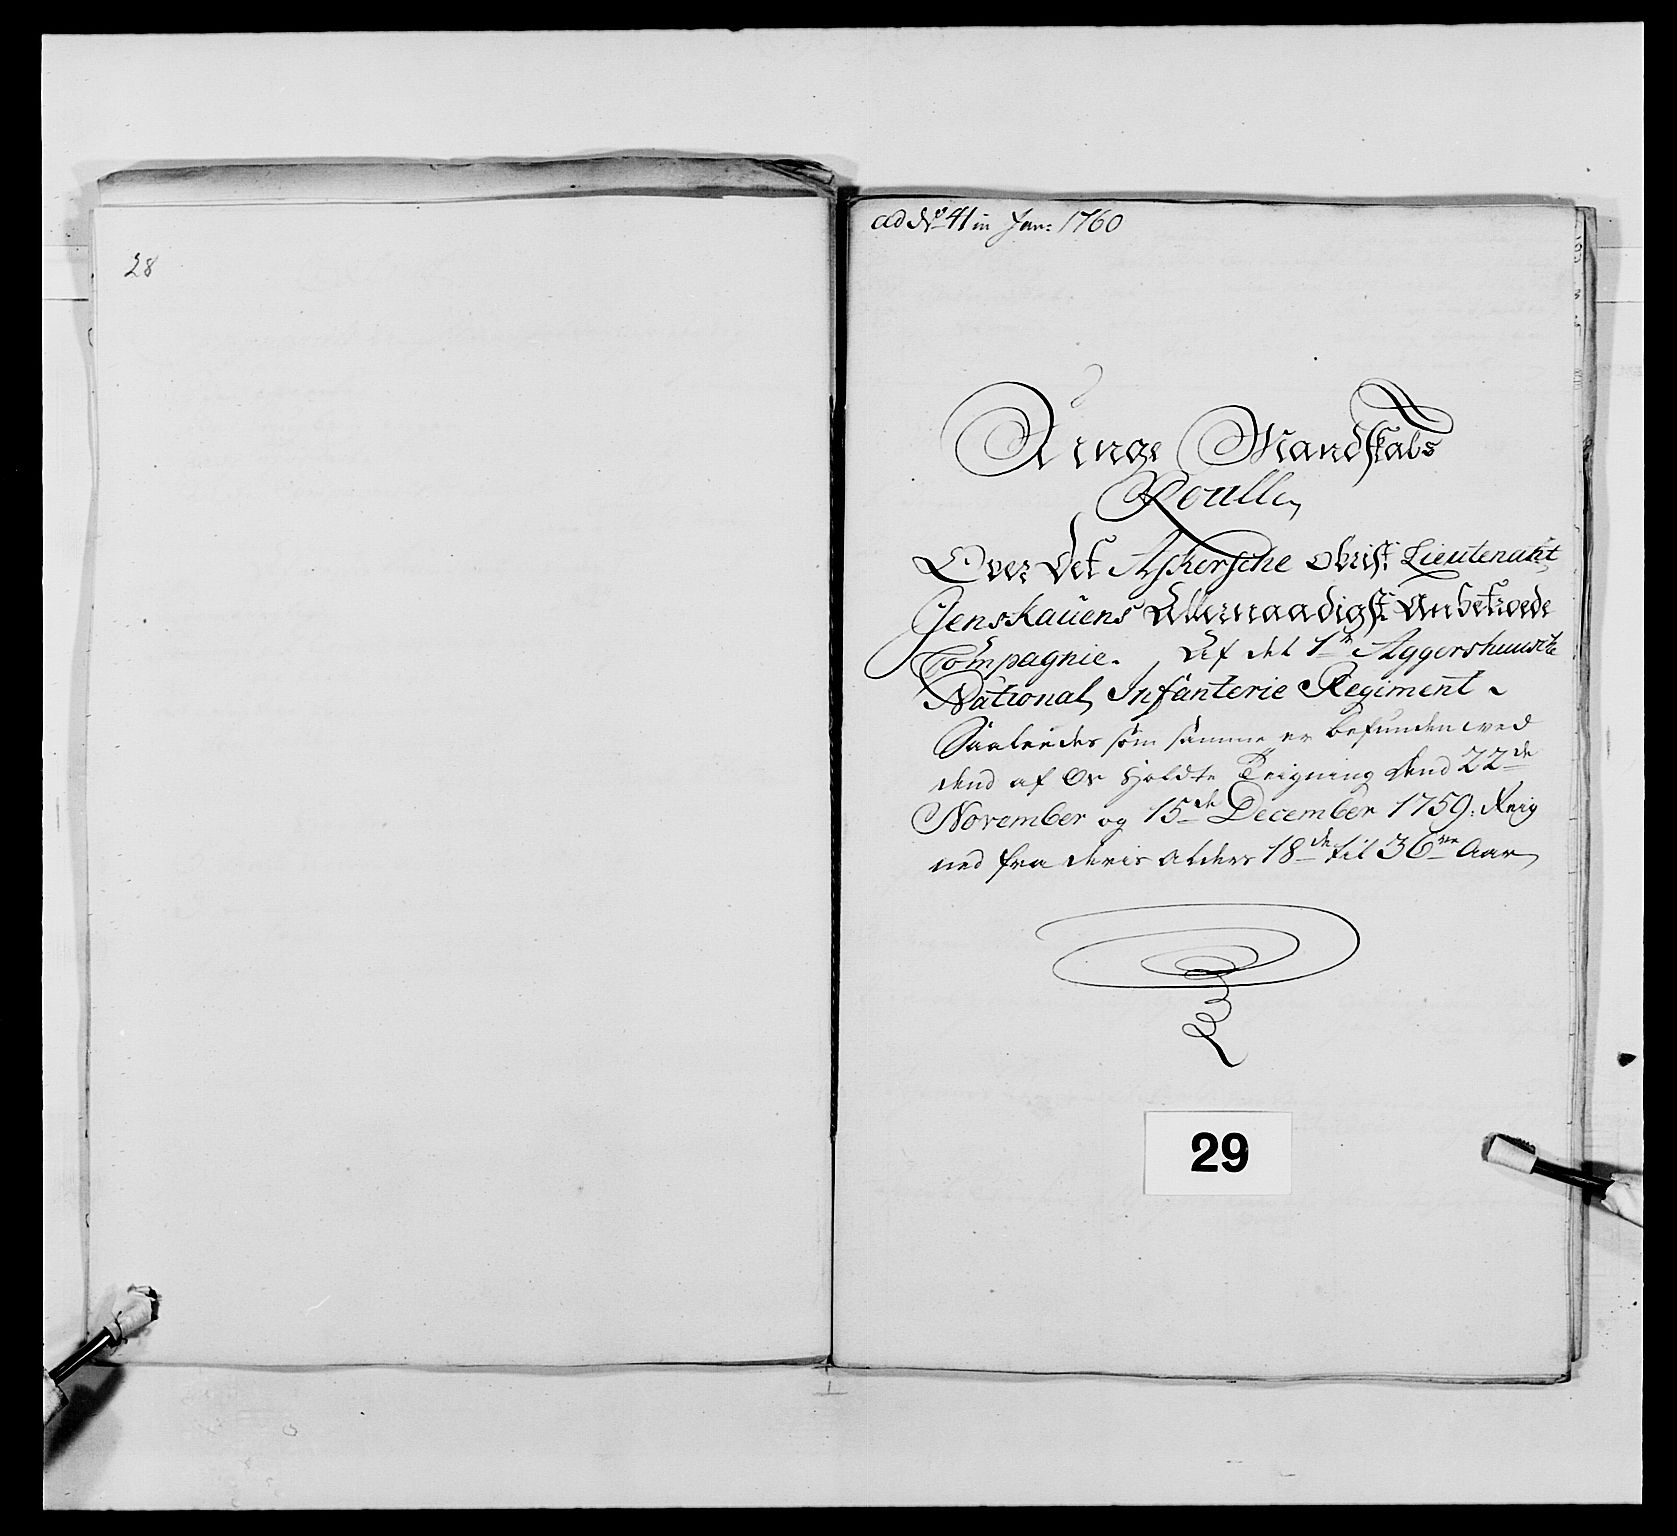 28
ad No 41 in Jan: 1760
Unge Mandskabs
Roulle
Over det Askersche Obrist Lieutenant
Jenskauens Allernaadigst Anbetroede
Compagnie. Af det 1te Aggershuusche
National Infanterie Regiment
Saaledes som samme er befunden ved
dend af Er Holdte Teigning dend 22de
November og 15de December 1759: Reig
ned fra deris alders 18de til 36te Aar
29